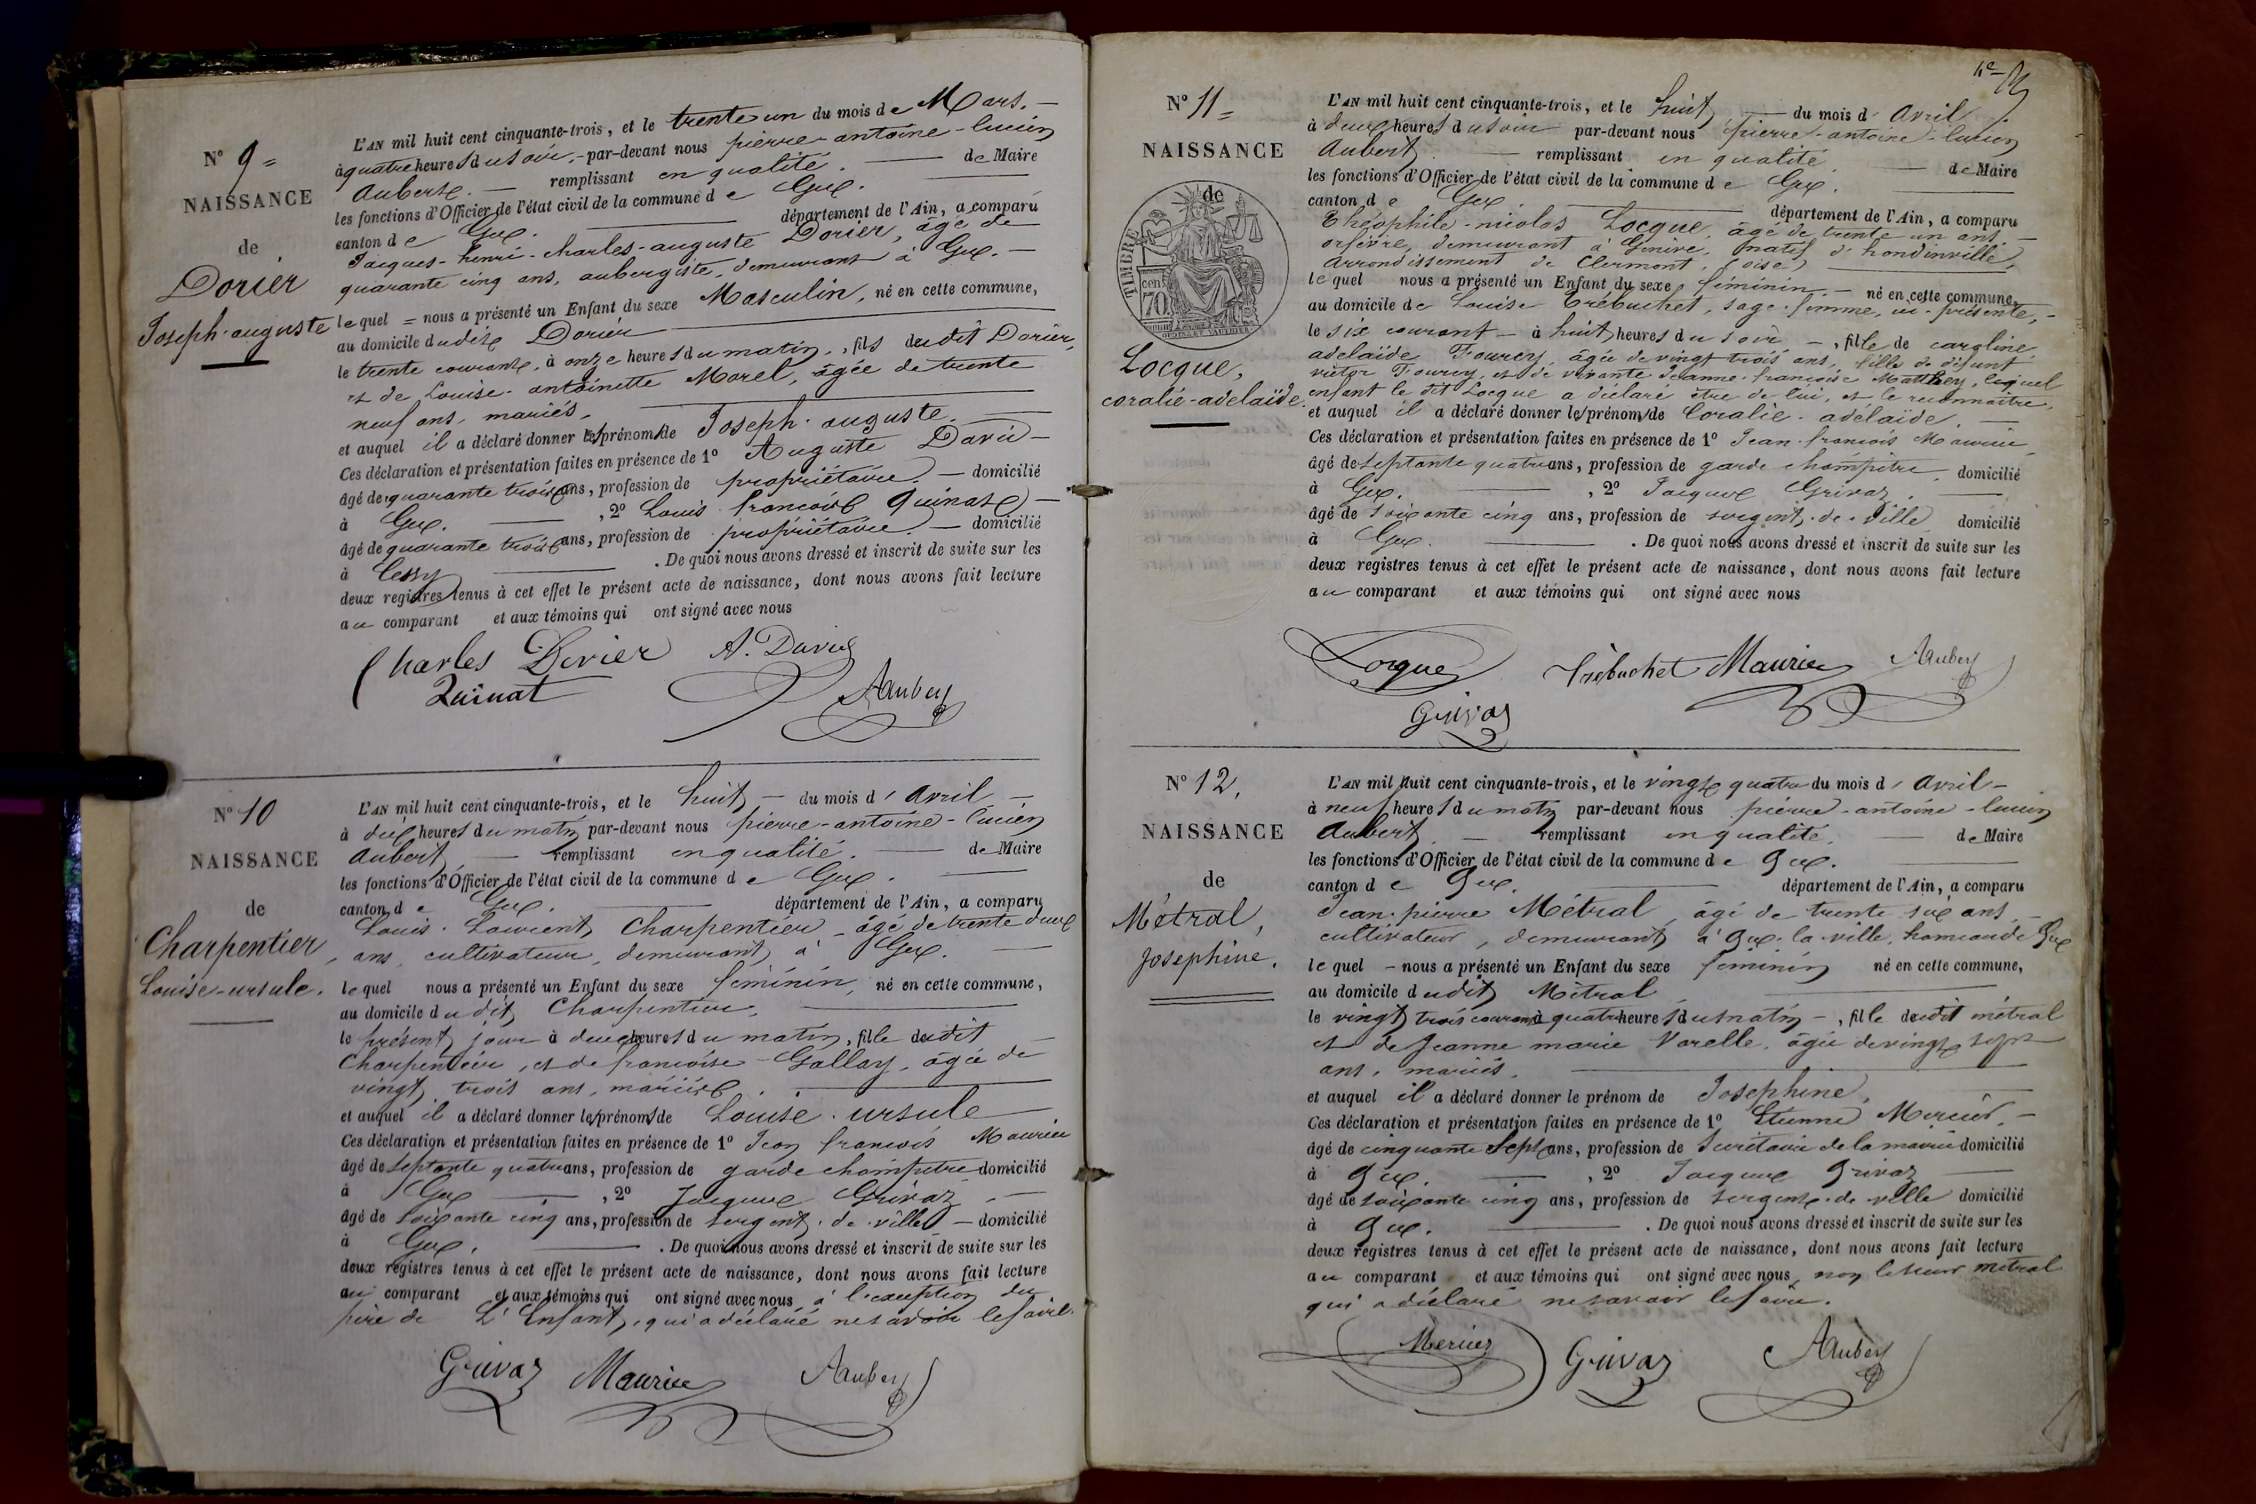 N° 9 =
NAISSANCE
de
Dorier
Joseph-auguste
L'AN mil huit cent cinquante-trois, et le trente un du mois de Mars. —
à quatre heures du soir, - par-devant nous pierre-antoine-lucien
Aubert. — remplissant en qualité. — de Maire
les fonctions d'Officier de l'état civil de la commune de Gex. —
canton de Gex. — département de l'Ain, a comparu
Jacques-henri-charles-auguste Dorier, âgé de
quarante cinq ans, aubergiste, demeurant à Gex. —
lequel = nous a présenté un Enfant du sexe Masculin, né en cette commune,
au domicile dudit Dorier —
le trente courant, à onze heures du matin, fils dudit Dorier,
et de Louise-antoinette Morel, âgée de trente
neuf ans, mariés. —
et auquel il a déclaré donner les prénoms de Joseph-auguste. —
Ces déclaration et présentation faites en présence de 1° Auguste David —
âgé de quarante trois ans, profession de propriétaire. — domicilié
à Gex. — , 2° Louis françois Quinat —
âgé de quarante trois ans, profession de propriétaire. — domicilié
à Cessy — . De quoi nous avons dressé et inscrit de suite sur les
deux registres tenus à cet effet le présent acte de naissance, dont nous avons fait lecture
au comparant et aux témoins qui ont signé avec nous
Charles Dorier A. David
Quinat AAubert
N° 10
NAISSANCE
de
Charpentier,
Louise-ursule.
L'AN mil huit cent cinquante-trois, et le huit — du mois d'avril —
à dix heures du matin par-devant nous pierre-antoine-lucien
Aubert, — remplissant en qualité. — de Maire
les fonctions d'Officier de l'état civil de la commune de Gex. —
canton de Gex. — département de l'Ain, a comparu
Louis-Laurent Charpentier - âgé de trente deux
ans, cultivateur, demeurant à Gex. —
lequel nous a présenté un Enfant du sexe féminin, né en cette commune,
au domicile dudit Charpentier, —
le présent jour à deux heures du matin, fille dudit —
Charpentier, et de françoise Gallay, âgée de
vingt trois ans, mariés. —
et auquel il a déclaré donner les prénoms de Louise-ursule —
Ces déclaration et présentation faites en présence de 1° Jean françois Maurier
âgé de septante quatre ans, profession de garde champêtre domicilié
à Gex — , 2° Jacques Grivaz. —
âgé de soixante cinq ans, profession de sergent-de-ville — domicilié
à Gex. — . De quoi nous avons dressé et inscrit de suite sur les
deux registres tenus à cet effet le présent acte de naissance, dont nous avons fait lecture
au comparant et aux témoins qui ont signé avec nous à l'exception du
père de L'Enfant, qui a déclaré ne savoir le faire.
Grivaz Maurier AAubert
N° 11 =
NAISSANCE
de
TIMBRE
cent
70
Locque,
coralie-adelaïde.
L'AN mil huit cent cinquante-trois, et le huit — du mois d'Avril
à deux heures du soir par-devant nous pierre-antoine-lucien
Aubert. — remplissant en qualité — de Maire
les fonctions d'Officier de l'état civil de la commune de Gex. —
canton de Gex — département de l'Ain, a comparu
Théophile-nicolas Locque, âgé de trente un ans, —
orfèvre, demeurant à Genève, (natif d'hondinville,
arrondissement de Clermont, (oise) —
lequel nous a présenté un Enfant du sexe féminin. — né en cette commune,
au domicile de Louise Trébuchet, sage-femme, ici présente, -
le six courant — à huit heures du soir —, fille de caroline
adelaïde Fourcy, âgée de vingt trois ans, fille de défunt
victor Fourcy, et de vivante Jeanne-françoise Matthey, lequel
enfant le dit Locque a déclaré être de lui, et le reconnaître,
et auquel il a déclaré donner les prénoms de Coralie-adélaïde. —
Ces déclaration et présentation faites en présence de 1° Jean-françois Maurier
âgé de septante quatre ans, profession de garde champêtre, domicilié
à Gex. — , 2° Jacques Grivaz. —
âgé de soixante cinq ans, profession de sergent-de-ville domicilié
à Gex. — . De quoi nous avons dressé et inscrit de suite sur les
deux registres tenus à cet effet le présent acte de naissance, dont nous avons fait lecture
au comparant et aux témoins qui ont signé avec nous
Locque Trébuchet Maurier AAubert
Grivaz
N° 12.
NAISSANCE
de
Métral,
Josephine.
L'AN mil huit cent cinquante-trois, et le vingt quatre du mois d'avril —
à neuf heures du matin par-devant nous pierre-antoine-lucien
Aubert. — remplissant en qualité. — de Maire
les fonctions d'Officier de l'état civil de la commune de Gex. —
canton de Gex. — département de l'Ain, a comparu
Jean-pierre Métral, âgé de trente six ans, —
cultivateur, demeurant à Gex-la-ville, hameau de Gex
lequel - nous a présenté un Enfant du sexe féminin né en cette commune,
au domicile dudit Métral, —
le vingt trois courant à quatre heures du matin —, fille dudit métral
et de Jeanne marie Varelle, âgée de vingt sept
ans, mariés. —
et auquel il a déclaré donner le prénom de Josephine. —
Ces déclaration et présentation faites en présence de 1° Etienne Mercier, —
âgé de cinquante sept ans, profession de secrétaire de la mairie domicilié
à Gex. — , 2° Jacques Grivaz —
âgé de soixante cinq ans, profession de sergent-de-ville domicilié
à Gex. — . De quoi nous avons dressé et inscrit de suite sur les
deux registres tenus à cet effet le présent acte de naissance, dont nous avons fait lecture
au comparant et aux témoins qui ont signé avec nous, non le sieur métral
qui a déclaré ne savoir le faire.
Mercier Grivaz AAubert